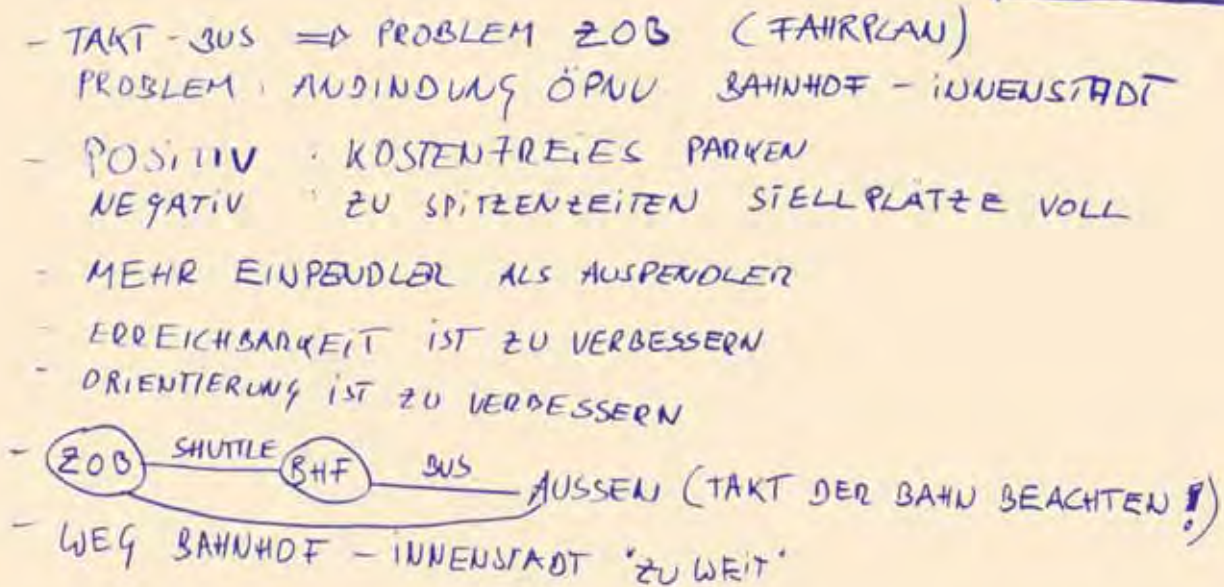 - TAKT-BUS => PROBLEM ZOB (FAHRPLAN)
PROBLEM: ANBINDUNG ÖPNV BAHNHOF - INNENSTADT
- POSITIV : KOSTENFREIES PARKEN
NEGATIV : ZU SPITZENZEITEN STELLPLÄTZE VOLL
- MEHR EINPENDLER ALS AUSPENDLER
- ERREICHBARKEIT IST ZU VERBESSERN
- ORIENTIERUNG IST ZU VERBESSERN
- ZOB SHUTTLE BHF BUS AUSSEN (TAKT DER BAHN BEACHTEN!)
- WEG BAHNHOF - INNENSTADT "ZU WEIT"